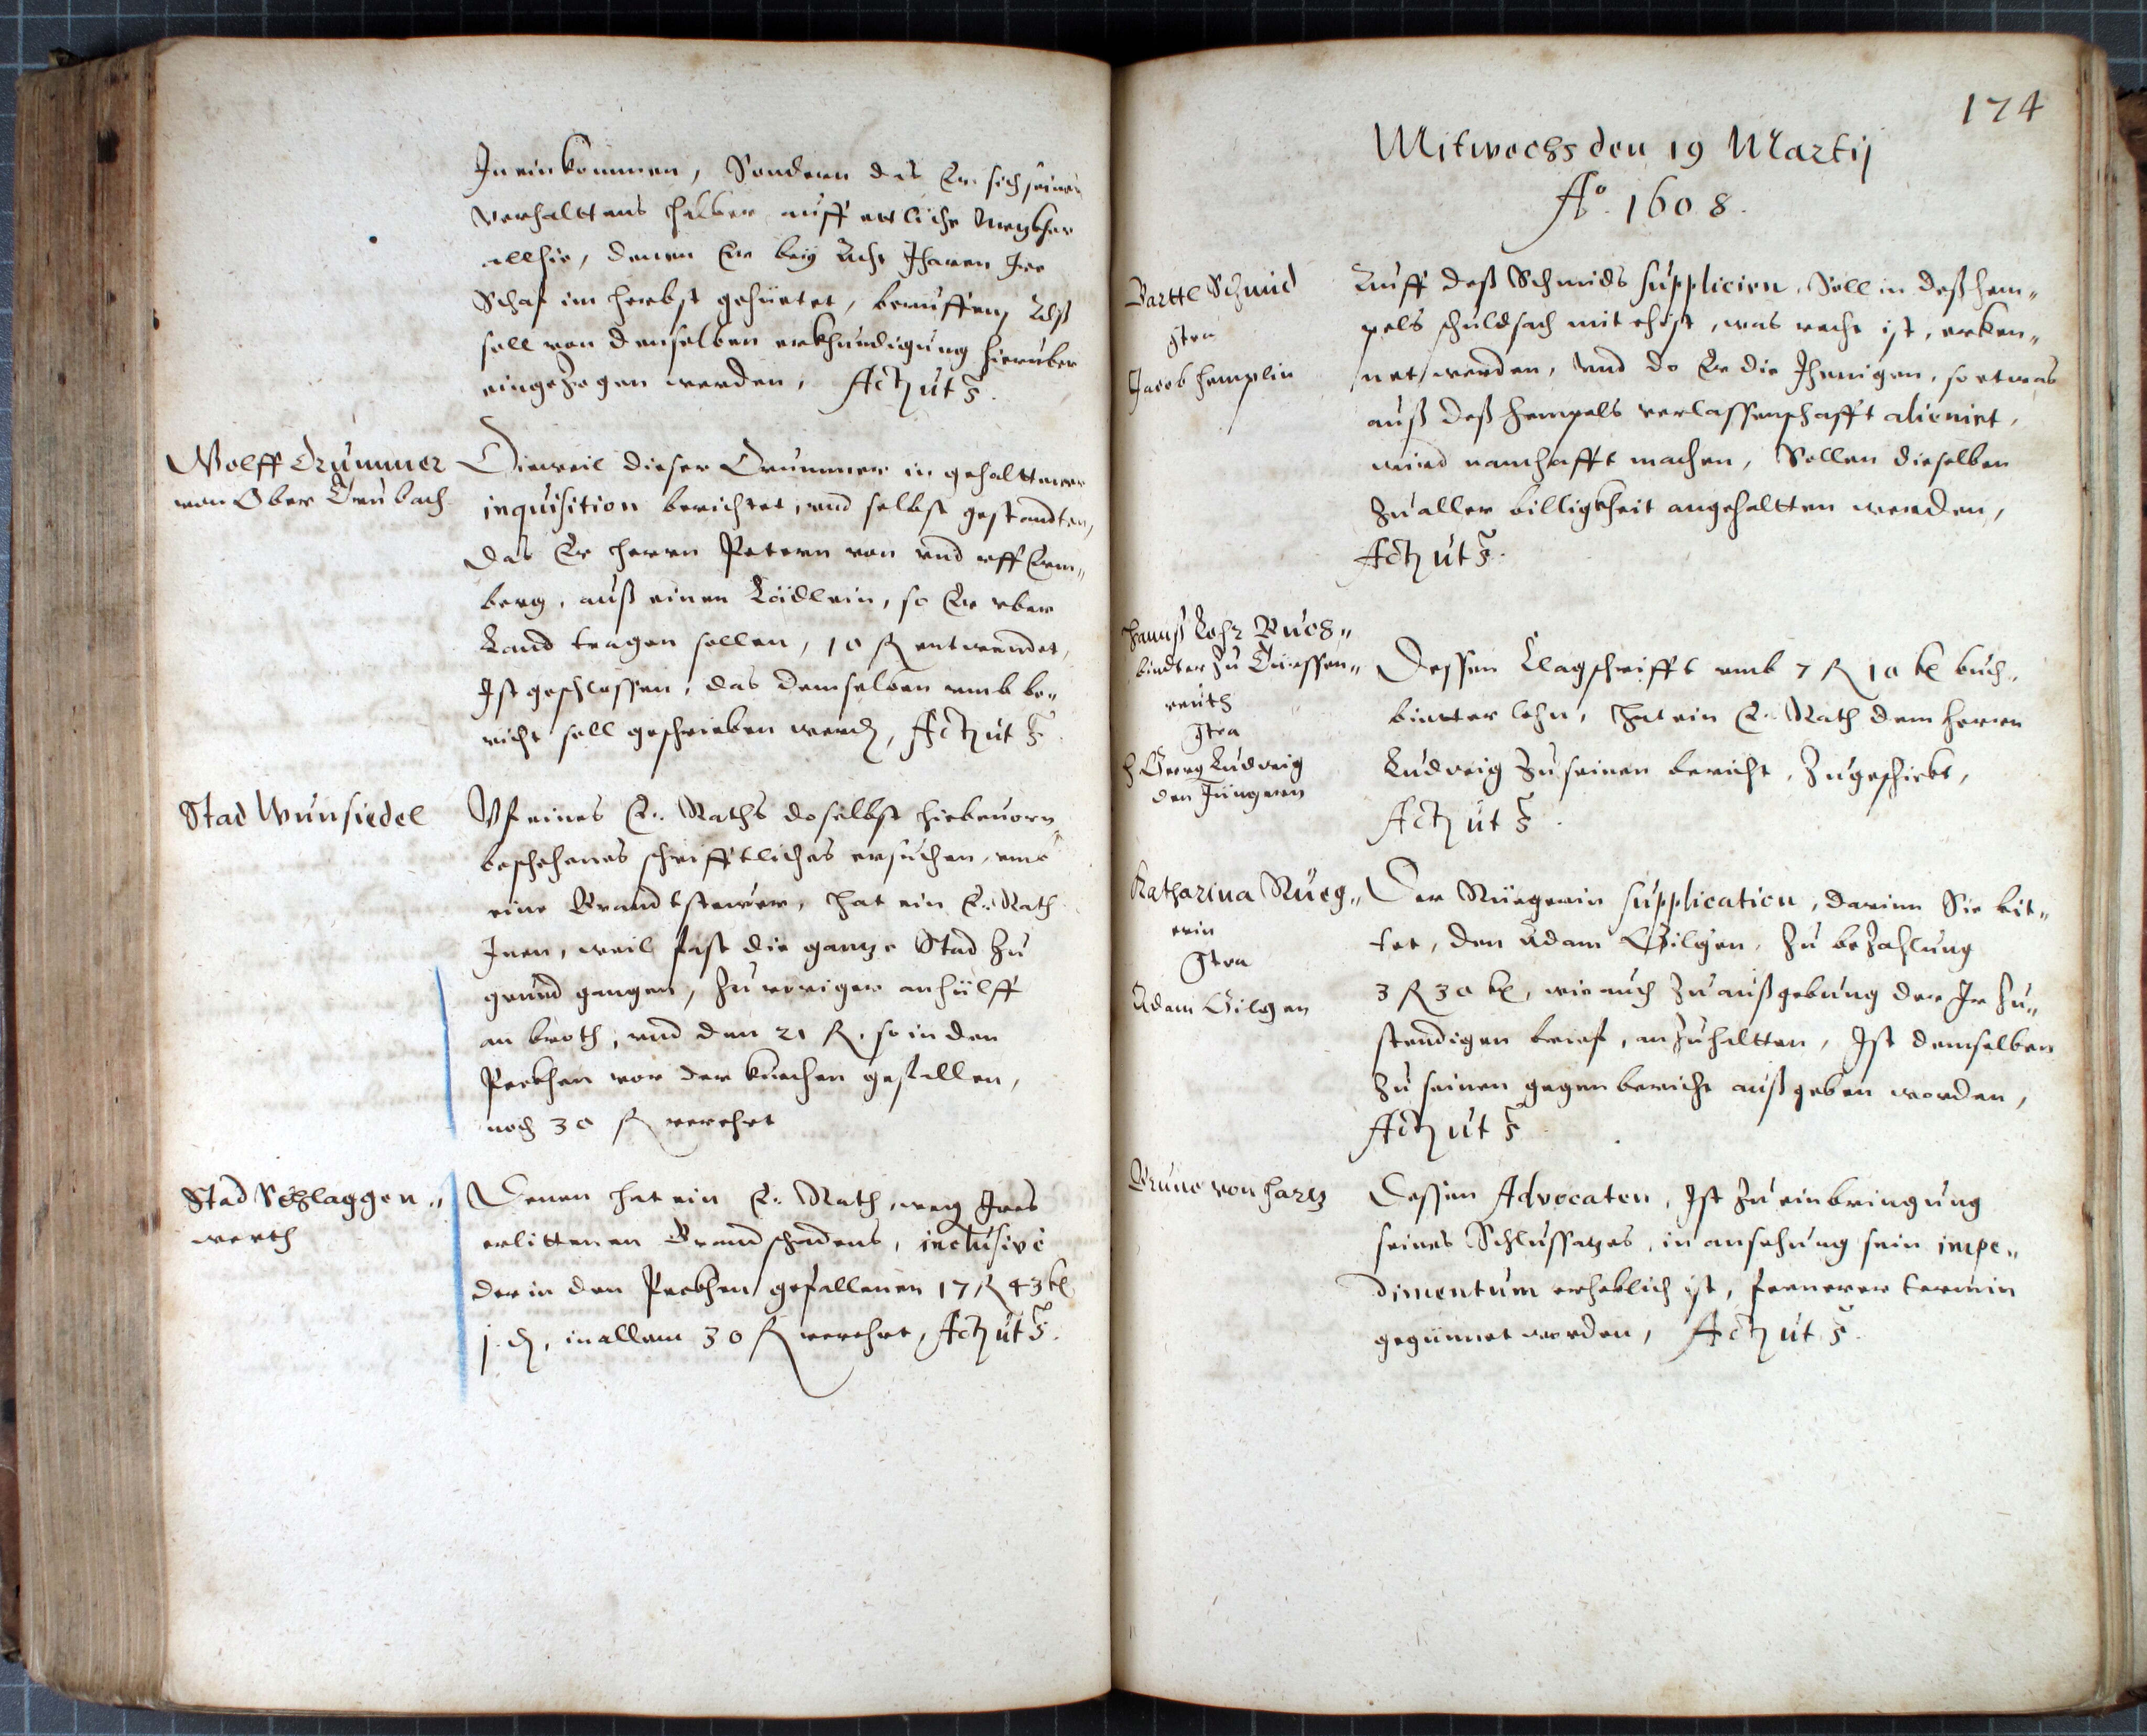 In einkommen, Sondern das Er sich seines
verhalttens halber auff ettliche Metzkher
allhie, denen Er bey Acht Jharen Ire
Schaf im herbst gehüetet, beruffen, Alß
soll von denselben erkhundigung hierüber
eingezogen werden, Act ut s.
Wolff Drummer
von Ober Trubach
Dieweil dieser Drummer in gehalttner
inquisition berichtet, und selbst gestandten,
das Er herrn Petern von und uff Erm„
berg, auß einen Lädlein, so Er uber
Land tragen sollen, 10 fl entwendet,
Ist geschlossen, das demselben umb be„
richt soll geschrieben werd, Act ut s.
Stad Wunsiedel
Uf eines E. Raths doselbst hiebevorn
beschehenes schrifftliches ersuchen, umb
eine Brandtstewer, hat ein E. Rath
Inen, weil fast die gantze Stad zu
grund gangen, zu voriger anhülff
an broth, und den 21 fl. so in den
Peckhen vor der kirchen gefallen,
noch 30 fl verehrt
Stad Schlaggen„
werth
Denen hat ein E. Rath, weg Ires
erlittenen Brandschadens, inclusive
der in den Peckhen gefallenen 17 fl 43 kr
j. d, in allem 30 fl verehrt, Act ut s.
174
Mitwochs den 19 Martij
Ao. 1608.
Barttl Schmid
gtra
Jacob Hemplin
Auff deß Schmids suppliciren, Soll in deß Hem„
pels schuldsach mit ehist, was recht ist, erken„
net werden, und do Er die Ihenigen, so etwas
auß deß Hempels verlassenschafft alienirt,
wird namhafft machen, Sollen dieselben
zu aller billigkheit angehaltten werden,
Act ut s.
Hannß Lohr Buch„
bindter zu Türssen„
reuth
gtra
H Georg Ludwig
den Jüngern
Dessen Clagschrifft umb 7 fl 10 kr buch„
binter lohn, hat ein E. Rath dem herrn
Ludwig zu seinen bericht, zugeschickt,
Act ut s.
Katharina Rueg„
erin
gtra
Adam Gilgen
Der Rüegerin supplication, darinn Sie bit„
tet, den Adam Gilgen, zu bezahlung
3 fl 30 kr, wie auch zu außgebung der Ir zu„
stendigen brief, anzuhaltten, Ist demselben
zu seinen gegenbericht außgeben worden,
Act ut s.
Bruno von Hartz
Dessen Advocaten, Ist zu einbringung
seines Schlussatzes, in ansehung sein impe„
dimentum erheblich ist, fernerer termin
gegünnet worden, Act ut s.